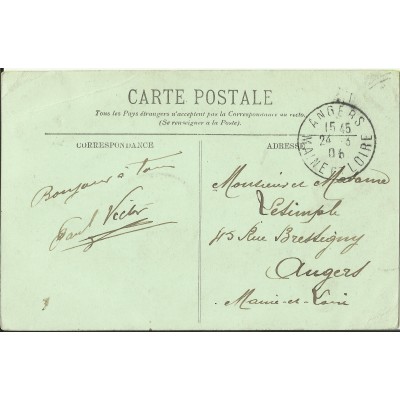 CARTE POSTALE
Tous les Pays étrangers n'acceptent pas la Correspondance au recto.
(Se renseigner à la Poste).
CORRESPONDANCE
ADRESSE
ANGERS
15 45
24 - 3
06
MAINE ET LOIRE
Bonjour à tous
Paul Victor
Monsieur et Madame
Letimple
45 Rue Bressigny
Angers
Maine-et-Loire